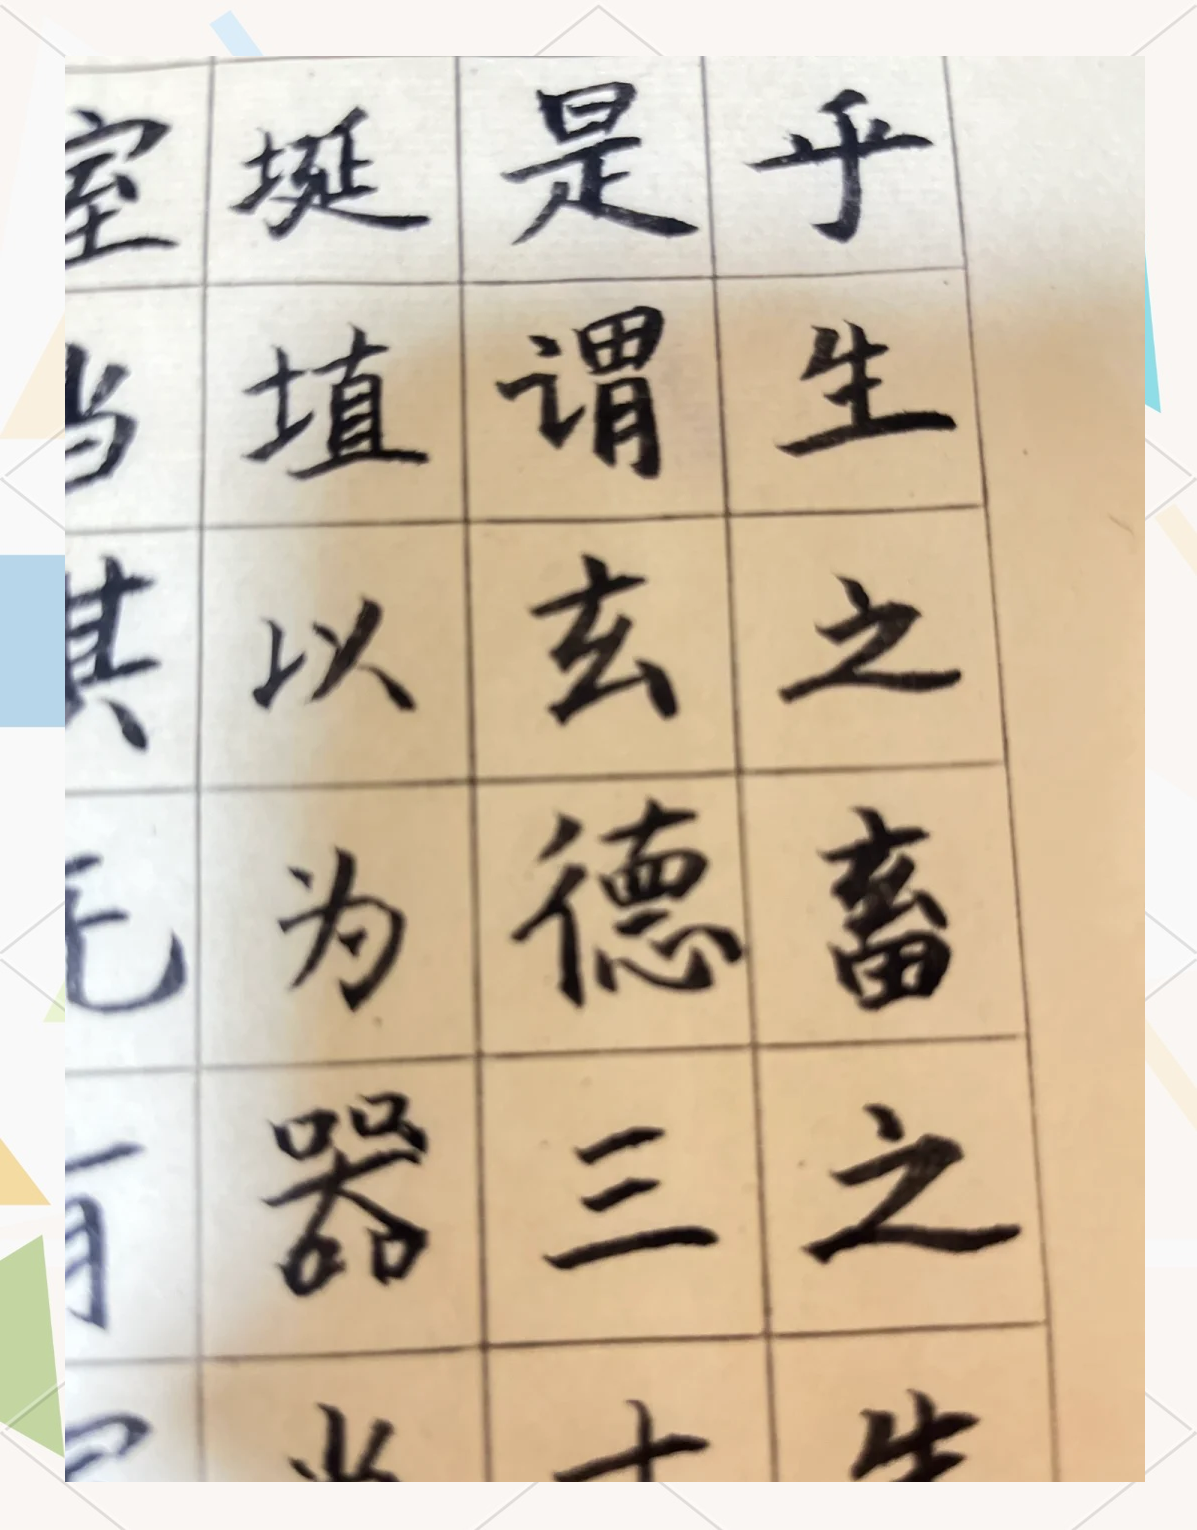 乎生之畜之生
是谓玄德三十
埏埴以为器当
室当其无有室